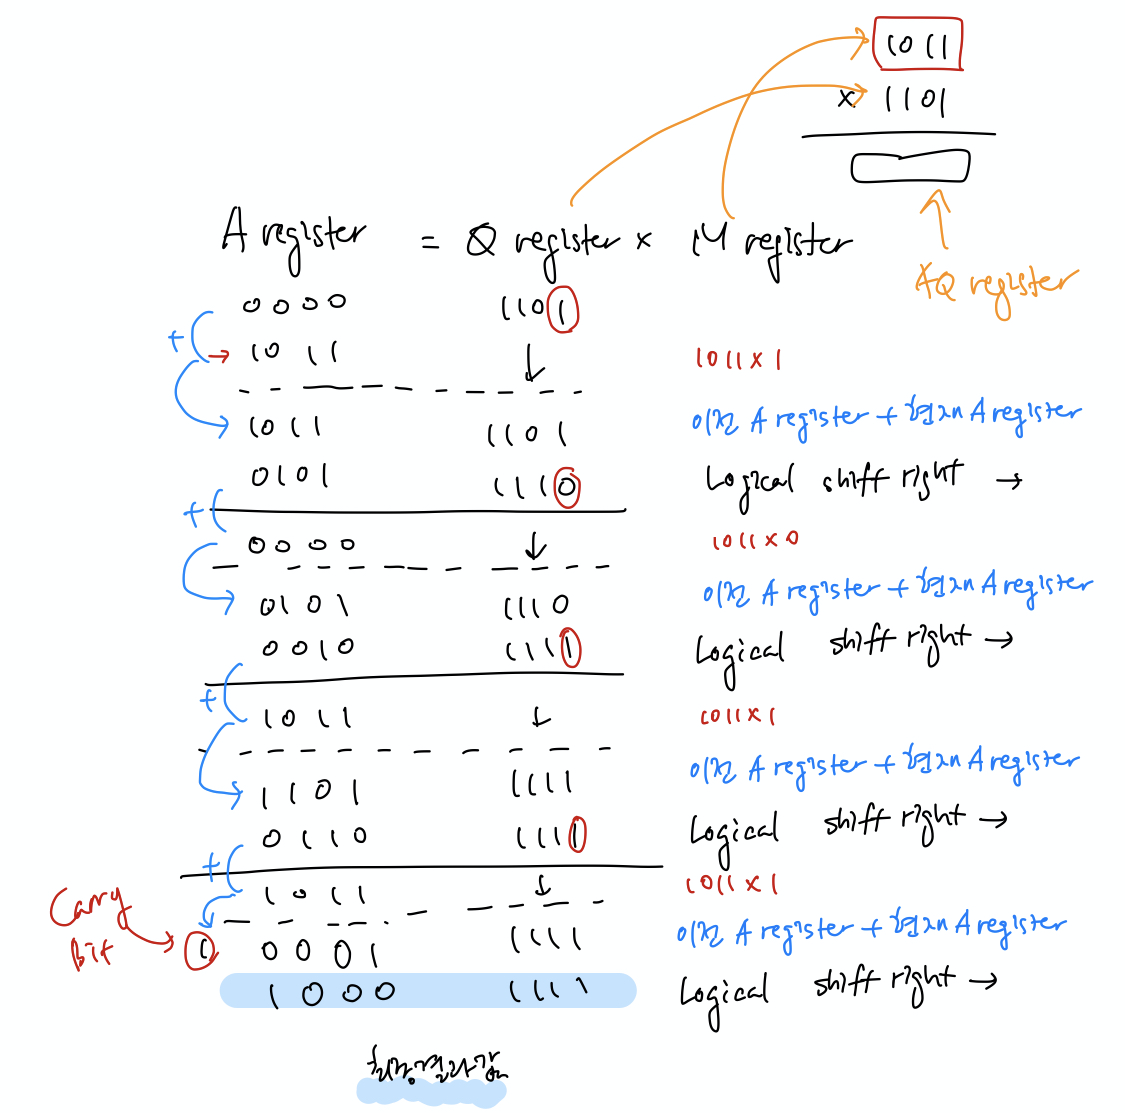 1011
x 1101
A register = Q register x M register
AQ register
0000 1101
+ → 1011 ↓ 1011x1
1011 1101 이전 A register + 현재 A register
0101 1110 Logical shift right →
+ 0000 ↓ 1011x0
0101 1110 이전 A register + 현재 A register
0010 1111 Logical shift right →
+ 1011 ↓ 1011x1
1101 1111 이전 A register + 현재 A register
0110 1111 Logical shift right →
+ 1011 ↓ 1011x1
Carry Bit → 1 0001 1111 이전 A register + 현재 A register
1000 1111 Logical shift right →
최종결과값